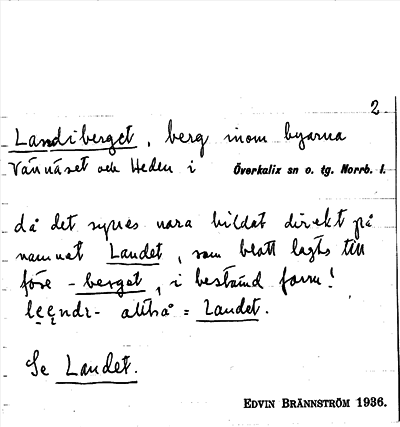 2
Landiberget, berg inom byarna
Vännäset och Heden i Överkalix sn o. tg. Norrb. l.
då det synes vara bildat direkt på
namnet Landet, som blott lagts till
före -berget, i bestämd form!
alltså = Landet.
Se Landet.
EDVIN BRÄNNSTRÖM 1936.